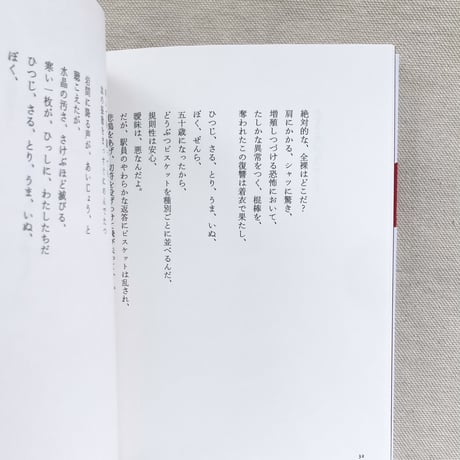 絶対的な、全裸はどこだ?
肩にかかる、シャツに驚き、
増殖しつづける恐怖において、
たしかな異常をつく、棍棒を、
奪われたこの復讐は着衣で果たし、
ひつじ、さる、とり、うま、いぬ、
ぼく、ぜんら、
五十歳になったから、
どうぶつビスケットを種別ごとに並べるんだ、
規則性は安心、
曖昧は、悪なんだよ。
だが、駅員のやわらかな返答にビスケットは乱され、
悲鳴をあげ、
32
声が、あいじょう、と
聴こえたが、
水晶の汚さ、さけぶほど滅びる、
寒い一枚が、ひっしに、わたしたちだ
ひつじ、さる、とり、うま、いぬ、
ぼく、